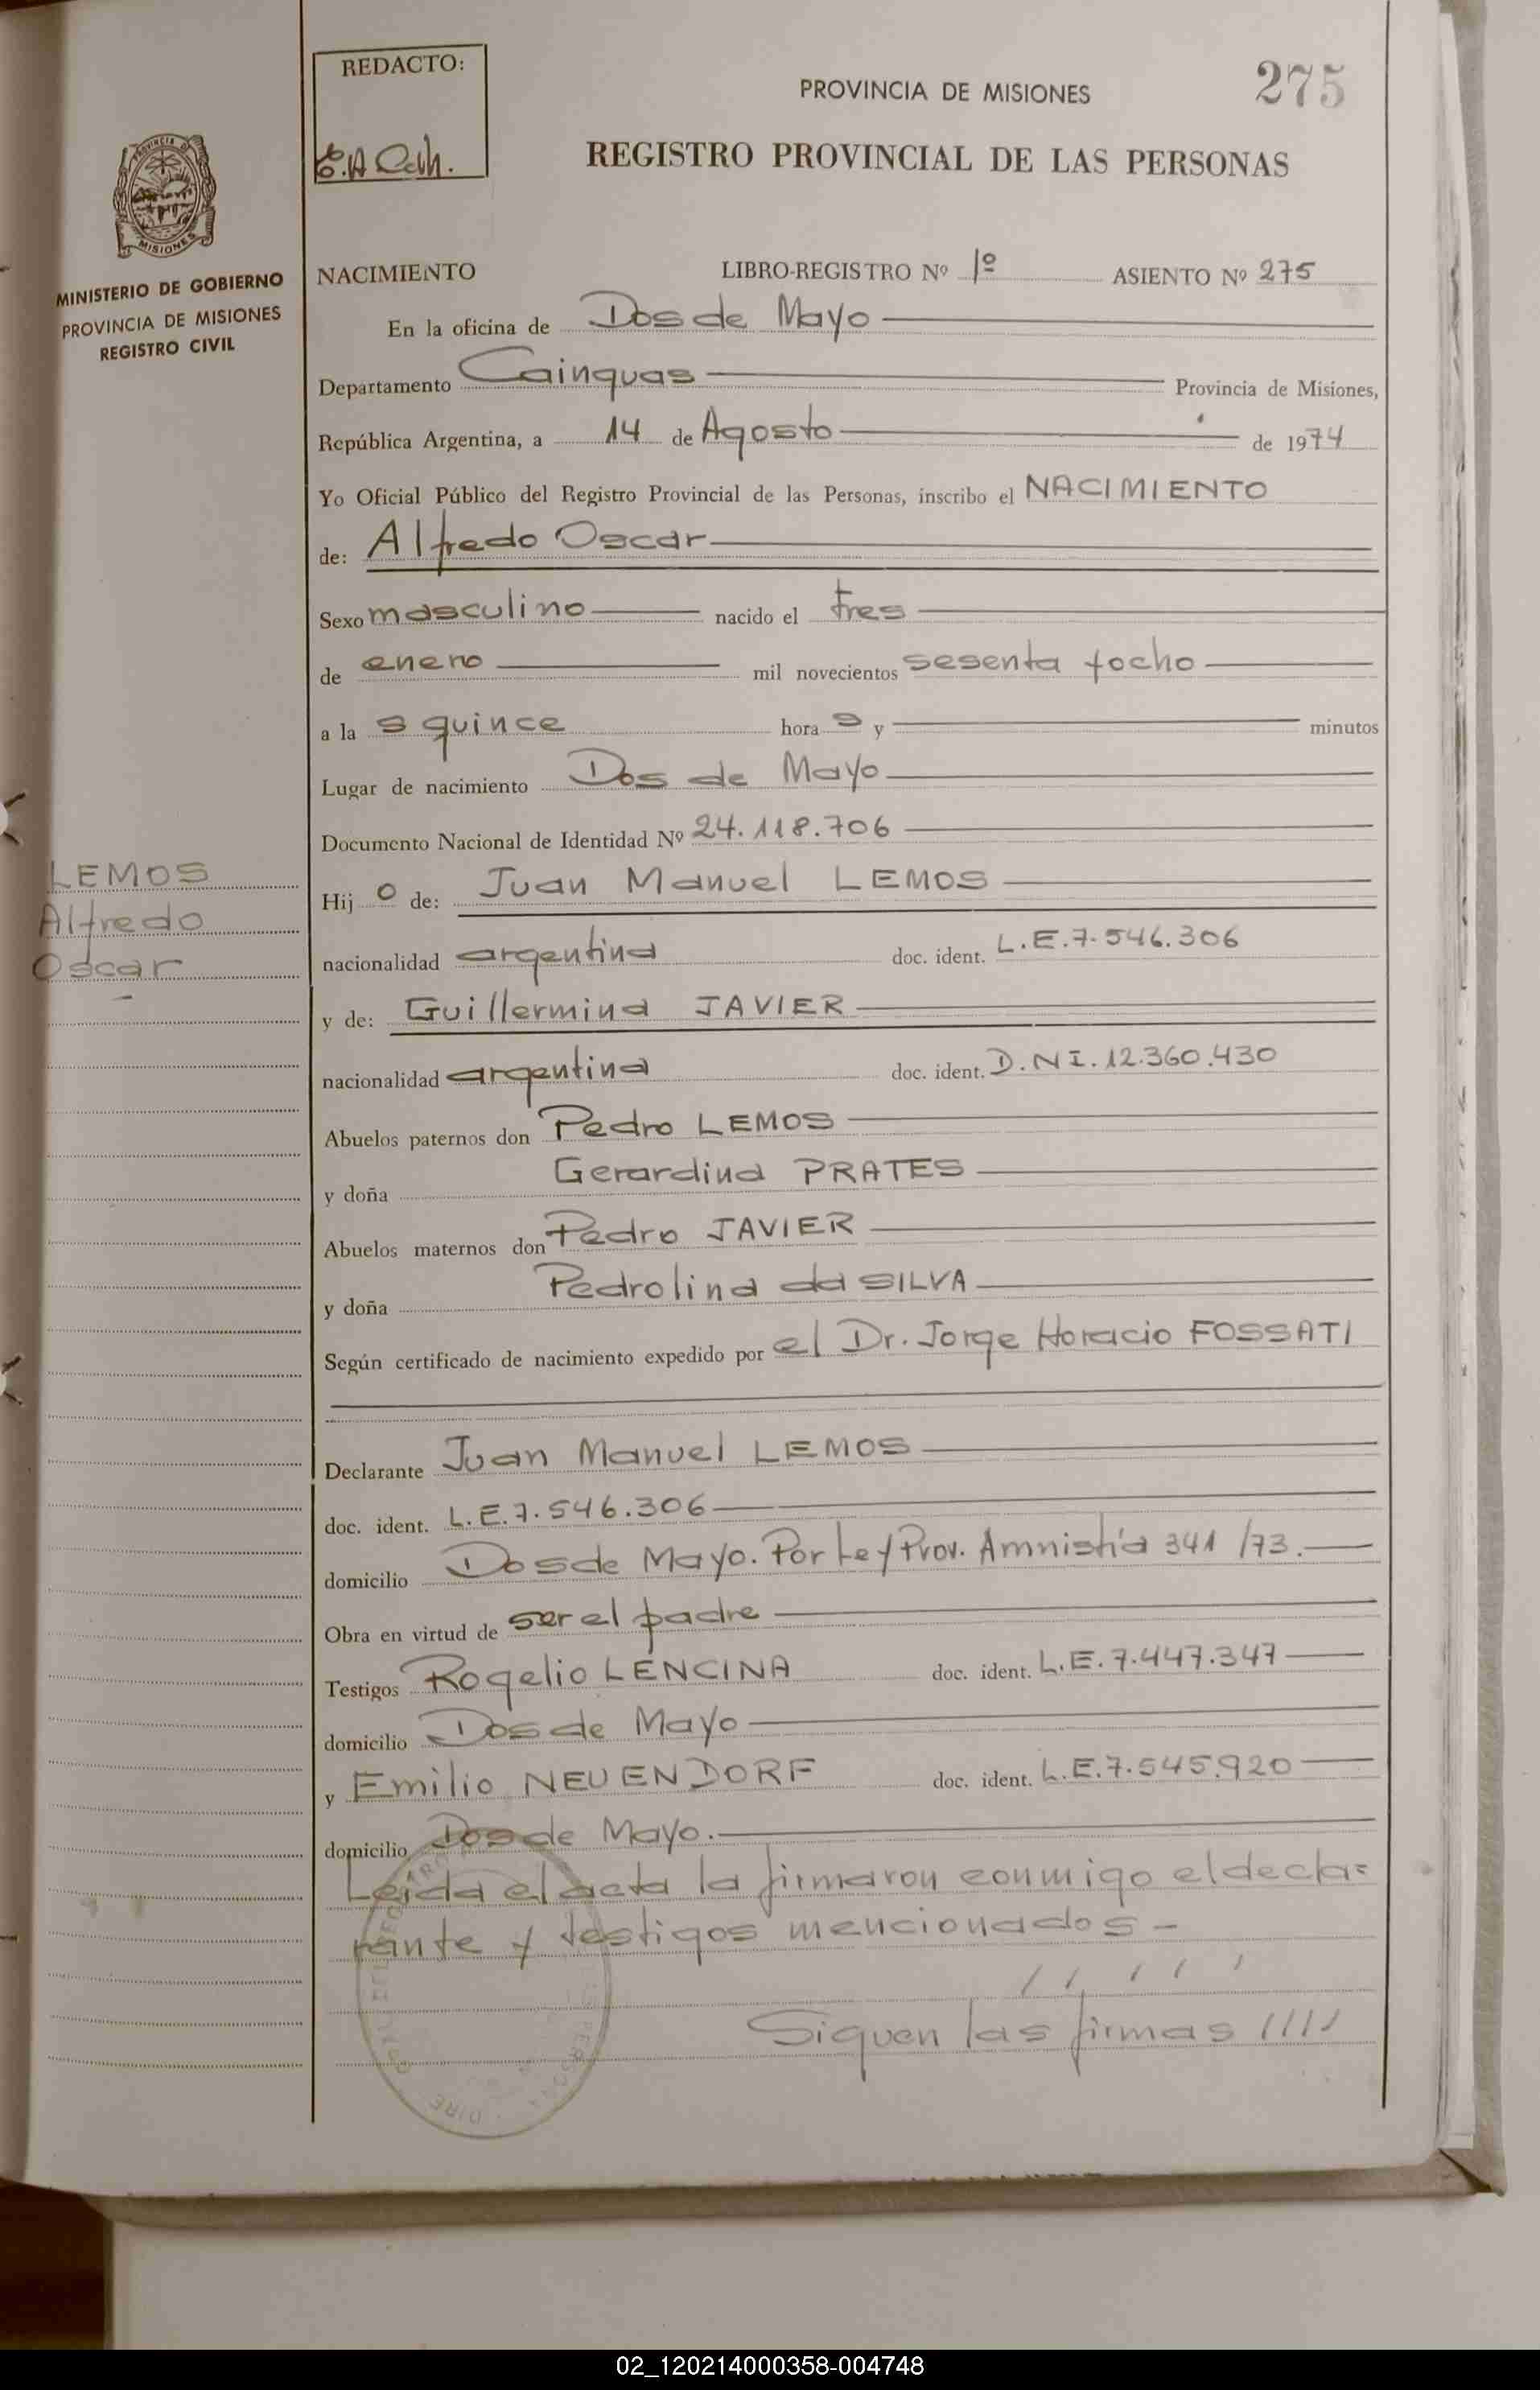 REDACTO:
PROVINCIA DE MISIONES
275
REGISTRO PROVINCIAL DE LAS PERSONAS
PROVINCIA DE
MISIONES
MINISTERIO DE GOBIERNO
PROVINCIA DE MISIONES
REGISTRO CIVIL
NACIMIENTO LIBRO-REGISTRO Nº 1º ASIENTO Nº 275
En la oficina de Dos de Mayo
Departamento Cainguas Provincia de Misiones,
República Argentina, a 14 de Agosto de 1974
Yo Oficial Público del Registro Provincial de las Personas, inscribo el NACIMIENTO
de: Alfredo Oscar
Sexo masculino nacido el tres
de enero mil novecientos sesenta yocho
a la s quince hora s y minutos
Lugar de nacimiento Dos de Mayo
Documento Nacional de Identidad Nº 24.118.706
Hij o de: Juan Manuel LEMOS
LEMOS
Alfredo
Oscar
nacionalidad argentina doc. ident. L.E.7.546.306
y de: Guillermina JAVIER
nacionalidad argentina doc. ident. D.N I.12.360.430
Abuelos paternos don Pedro LEMOS
y doña Gerardina PRATES
Abuelos maternos don Pedro JAVIER
y doña Pedrolina da SILVA
Según certificado de nacimiento expedido por el Dr. Jorge Horacio FOSSATI
Declarante Juan Manuel LEMOS
doc. ident. L.E.7.546.306
domicilio Dos de Mayo. Por Ley Prov. Amnistía 341/73.
Obra en virtud de ser el padre
Testigos Rogelio LENCINA doc. ident. L.E.7.447.347
domicilio Dos de Mayo
y Emilio NEUENDORF doc. ident. L.E.7.545.920
domicilio Dos de Mayo.
Leida el acta la firmaron conmigo el decla=
rante y testigos mencionados -
/ / / / /
Siguen las firmas ////
02_120214000358-004748